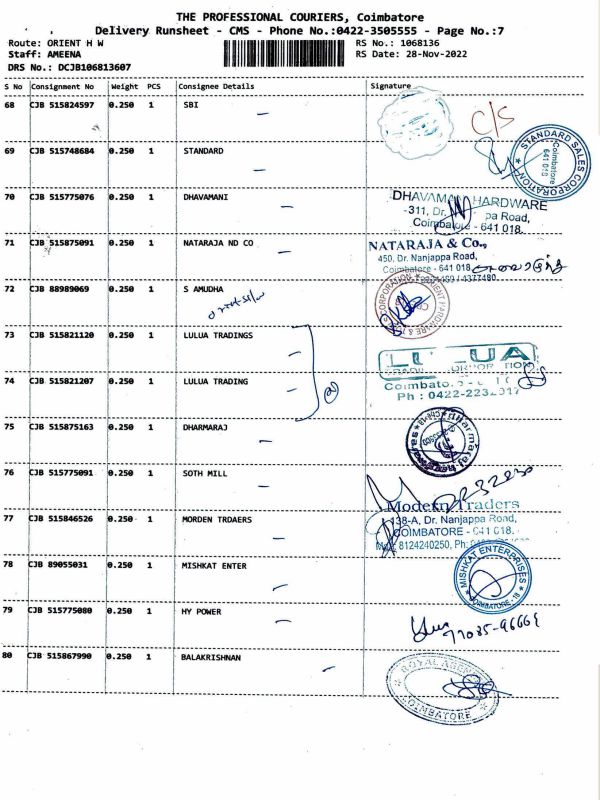 THE PROFESSIONAL COURIERS, Coimbatore
Delivery Runsheet - CMS - Phone No.:0422-3505555 - Page No.:7
Route: ORIENT H W
RS No.: 1068136
Staff: AMEENA
RS Date: 28-Nov-2022
DRS No.: DCJB106813607
S No Consignment No Weight PCS Consignee Details Signature
68 CJB 515824597 0.250 1 SBI
C/S
69 CJB 515748684 0.250 1 STANDARD
STANDARD SALES CORPORATION
Coimbatore
641 018
70 CJB 515775076 0.250 1 DHAVAMANI
DHAVAMANI HARDWARE
311, Dr. pa Road,
Coimbatore - 641 018.
71 CJB 515875091 0.250 1 NATARAJA ND CO
NATARAJA & Co.,
450, Dr. Nanjappa Road,
Coimbatore - 641 018
72 CJB 88989069 0.250 1 S AMUDHA
73 CJB 515821120 0.250 1 LULUA TRADINGS
LULUA
74 CJB 515821207 0.250 1 LULUA TRADING
2
Ph : 0422-223
75 CJB 515875163 0.250 1 DHARMARAJ
76 CJB 515775091 0.250 1 SOTH MILL
77 CJB 515846526 0.250 1 MORDEN TRDAERS
Modern Traders
138-A, Dr. Nanjappa Road,
COIMBATORE - 641 018.
8124240250, Ph:
78 CJB 89055031 0.250 1 MISHKAT ENTER
MISHKAT ENTERPRISES
COIMBATORE - 18
79 CJB 515775080 0.250 1 HY POWER
77085-96661
80 CJB 515867990 0.250 1 BALAKRISHNAN
ROYAL AGENCY
COIMBATORE